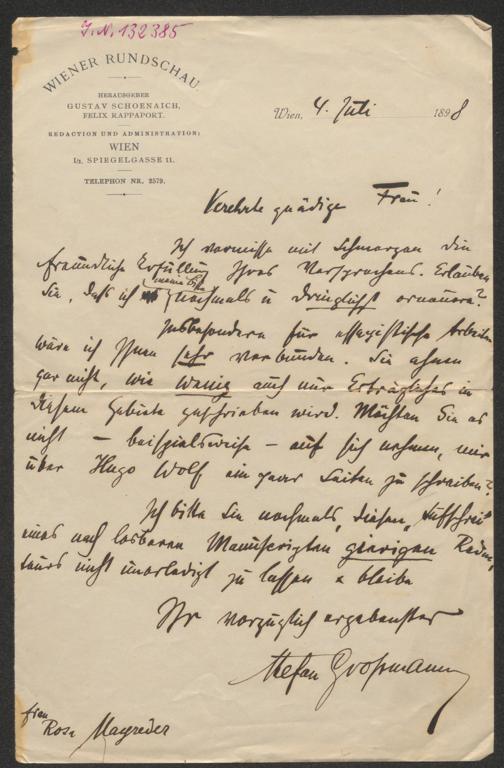 J.N. 132385
WIENER RUNDSCHAU.
HERAUSGEBER
GUSTAV SCHOENAICH,
FELIX RAPPAPORT.
REDACTION UND ADMINISTRATION:
WIEN
I/1. SPIEGELGASSE 11.
TELEPHON NR. 2579.
Wien, 4. Juli 1898
Verehrte gnädige Frau!
Ich vermisse mit Schmerzen die
freundliche Erfüllung Ihres Versprechens. Erlauben
Sie, daß ich meine Bitte
nochmals u dringlichst erneuere?
Insbesondere für essayistische Arbeiten
wäre ich Ihnen sehr verbunden. Sie ahnen
gar nicht, wie wenig auch nur Erträgliches in
diesem Gebiete geschrieben wird. Möchten Sie es
nicht – beispielsweise – auf sich nehmen, mir
über Hugo Wolf ein paar Seiten zu schreiben?
Ich bitte Sie nochmals, diesen Aufschrei
eines nach lesbaren Manuscripten gierigen Redac-
teurs nicht unerledigt zu lassen & bleibe
Ihr vorzüglich ergebenster
Stefan Großmann
Frau
Rosa Mayreder